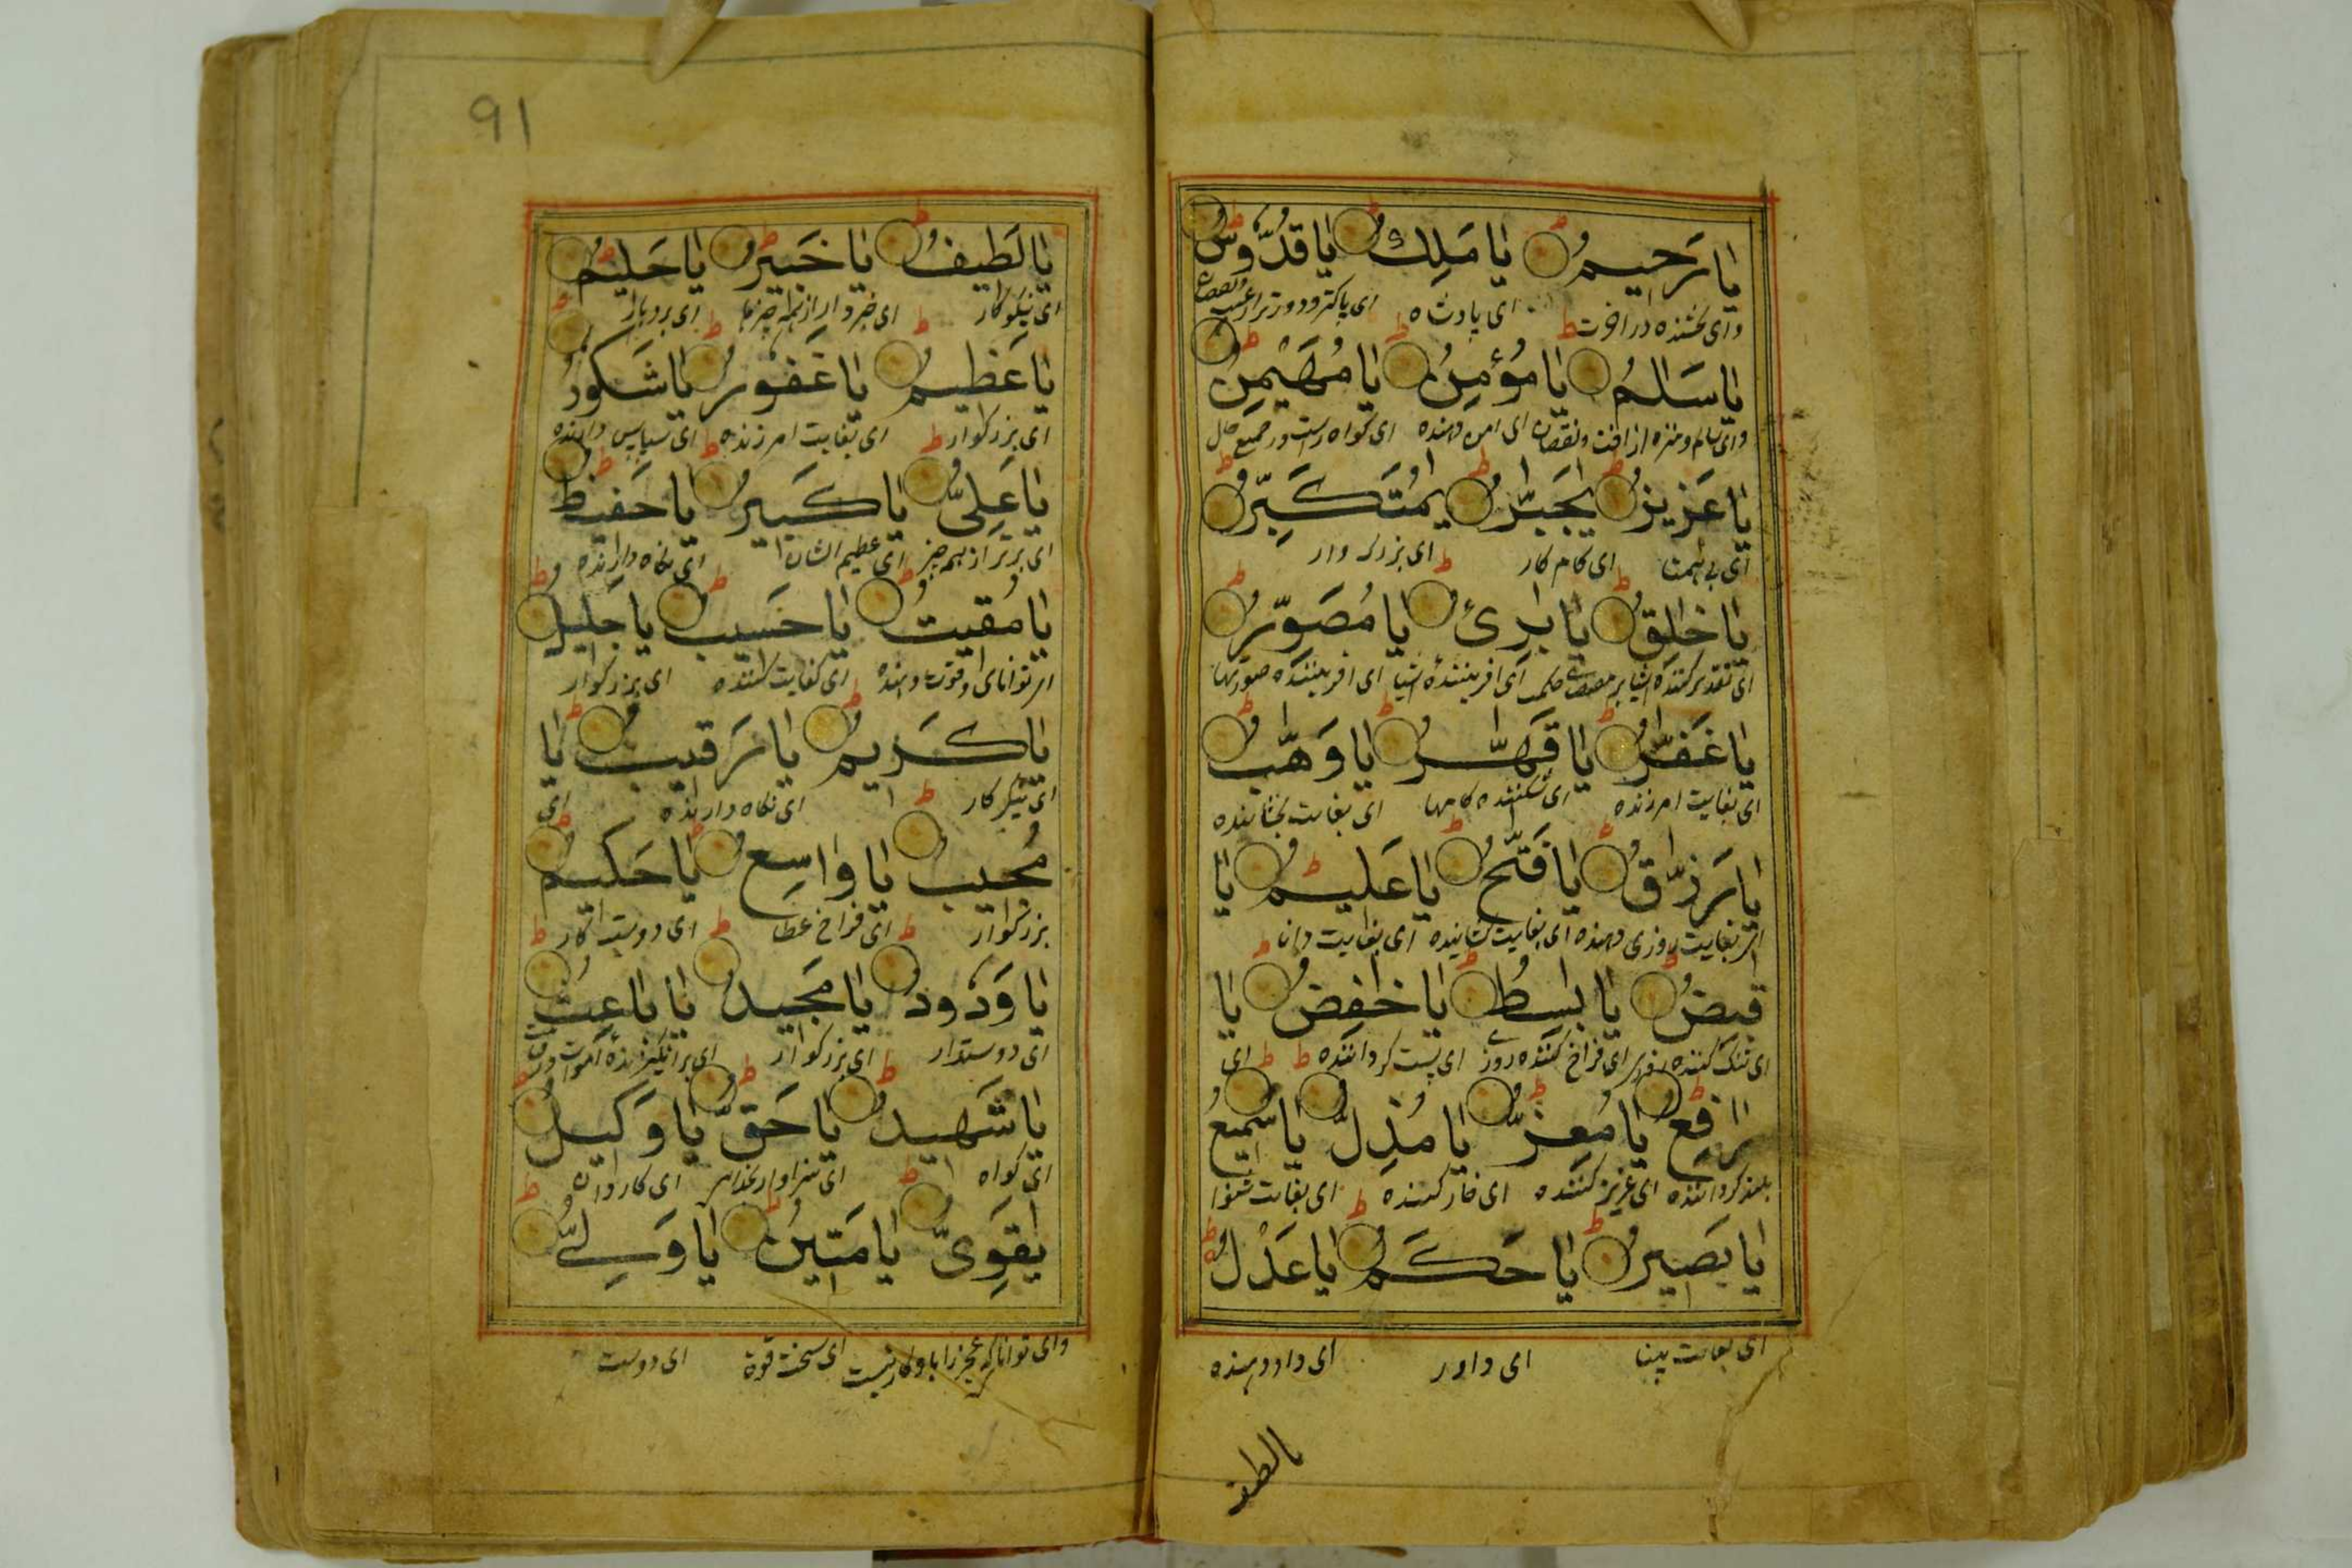 يا رَحيمُ يا مَلِكُ يا قدُّوسُ
وای بخشنده در اخرت ای پادشاه ای پاکتر و دورتر از عیب و نقصان
يا سَلٰمُ يا مُؤمِنُ يا مُهَيْمِنُ
وای سالم و منزه از افت و نقصان ای امن دهنده ای کواه راست در جمیع حال
يا عَزيزُ يٰجَبّٰرُ يمُتَكَبِّرُ
ای بی همتا ای کام کار ای بزرک وار
يا خٰلِقُ يا بٰرِئُ يا مُصَوِّرُ
ای تقدیر کننده اشیا بر حکمت ای افریننده اشیا ای افریننده صورتها
يا غَفّٰرُ يا قَهّٰرُ يا وَهّٰبُ
ای بغایت امرزنده ای شکننده کامها ای بغایت بخشاینده
يا رَزّٰقُ يا فَتّٰحُ يا عَليمُ يا
ای بغایت روزی دهنده ای بغایت کشاینده ای بغایت دانا
قٰبِضُ يا بٰسِطُ يا خٰفِضُ يا
ای تنک کننده ای فراخ کننده روزی ای پست کرداننده ای
رٰفِعُ يا مُعِزُّ يا مُذِلُّ يا سَميعُ
بلند کرداننده ای عزیز کننده ای خار کننده ای بغایت شنوا
يا بَصيرُ يا حَكَمُ يا عَدْلُ
ای بغایت بینا ای داور ای داد دهنده
يا لطيف
91
يا لَطيفُ يا خَبيرُ يا حَليمُ
ای نیکو کار ای خبردار از همه چیزها ای بردبار
يا عَظيمُ يا غَفورُ يا شَكورُ
ای بزرکوار ای بغایت امرزنده ای سپاس دارنده
يا عَلِىُّ يا كَبيرُ يا حَفيظُ
ای برتر از همه چیز ای عظیم الشان ای نکاه دارنده
يا مُقيتُ يا حَسيبُ يا جَليلُ
ای توانای و قوت دهنده ای کفایت کننده ای بزرکوار
يا كَريمُ يا رَقيبُ يا
ای نیکو کار ای نکاه دارنده ای
مُجيبُ يا وٰاسِعُ يا حَكيمُ
بزرکوار ای فراخ عطا ای درست کار
يا وَدودُ يا مَجيدُ يا باعِثُ
ای دوستدار ای بزرکوار ای برانکیزنده اموات
يا شَهيدُ يا حَقُّ يا وَكيلُ
ای کواه ای سزاوار ای کاردان
يٰقَوِىُّ يا مَتينُ يا وَلِىُّ
وای توانا که عجز را با او کار نیست ای سخت قوة ای دوست